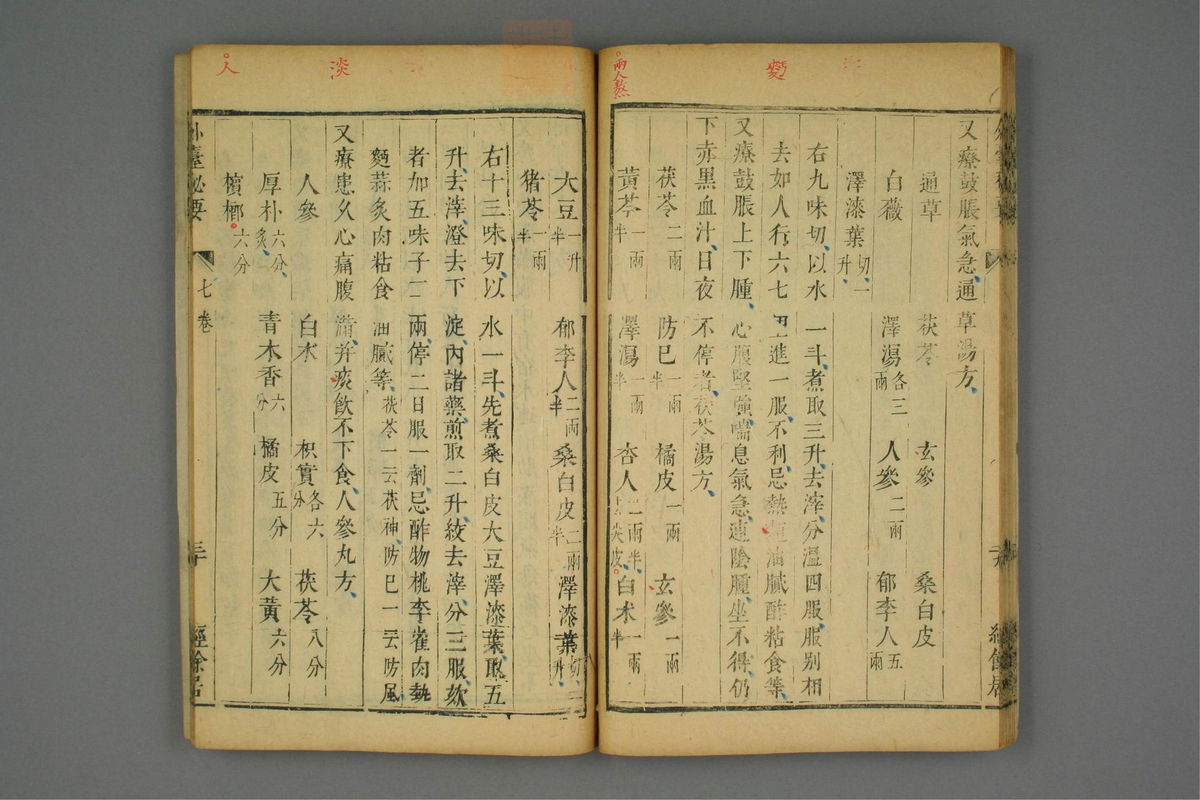 兩人熬
又療鼓脹氣急、通草湯方、
通草 茯苓 玄參 桑白皮
白薇 澤瀉各三兩 人參二兩 郁李人五兩
澤漆葉切、一升、
右九味切、以水一斗、煮取三升、去滓、分溫四服、服別相
去如人行六七里、進一服、不利、忌熱麵油膩酢粘食等、
又療鼓脹上下腫、心腹堅強、喘息氣急、連陰腫、坐不得、仍
下赤黑血汁、日夜不停者、茯苓湯方、
茯苓二兩 防巳一兩半 橘皮一兩 玄參一兩
黃芩一兩半 澤瀉一兩半 杏人二兩半、去尖皮 白朮一兩半
人 淡
大豆一升半 郁李人二兩半 桑白皮二兩半 澤漆葉切、二升
猪苓一兩半
右十三味切、以水一斗、先煮桑白皮大豆澤漆葉、取五
升、去滓、澄去下淀、內諸藥、煎取二升、絞去滓、分三服、欬
者加五味子二兩、停二日服一劑、忌酢物桃李雀肉熱
麵蒜炙肉粘食油膩等、茯苓一云茯神、防巳一云防風
又療患久心痛腹滿、并痰飲不下食、人參丸方、
人參 白朮 枳實各六分 茯苓八分
厚朴六分、炙、 青木香六分 橘皮五分 大黃六分
檳榔六分
外臺秘要 七卷 二十 經餘居